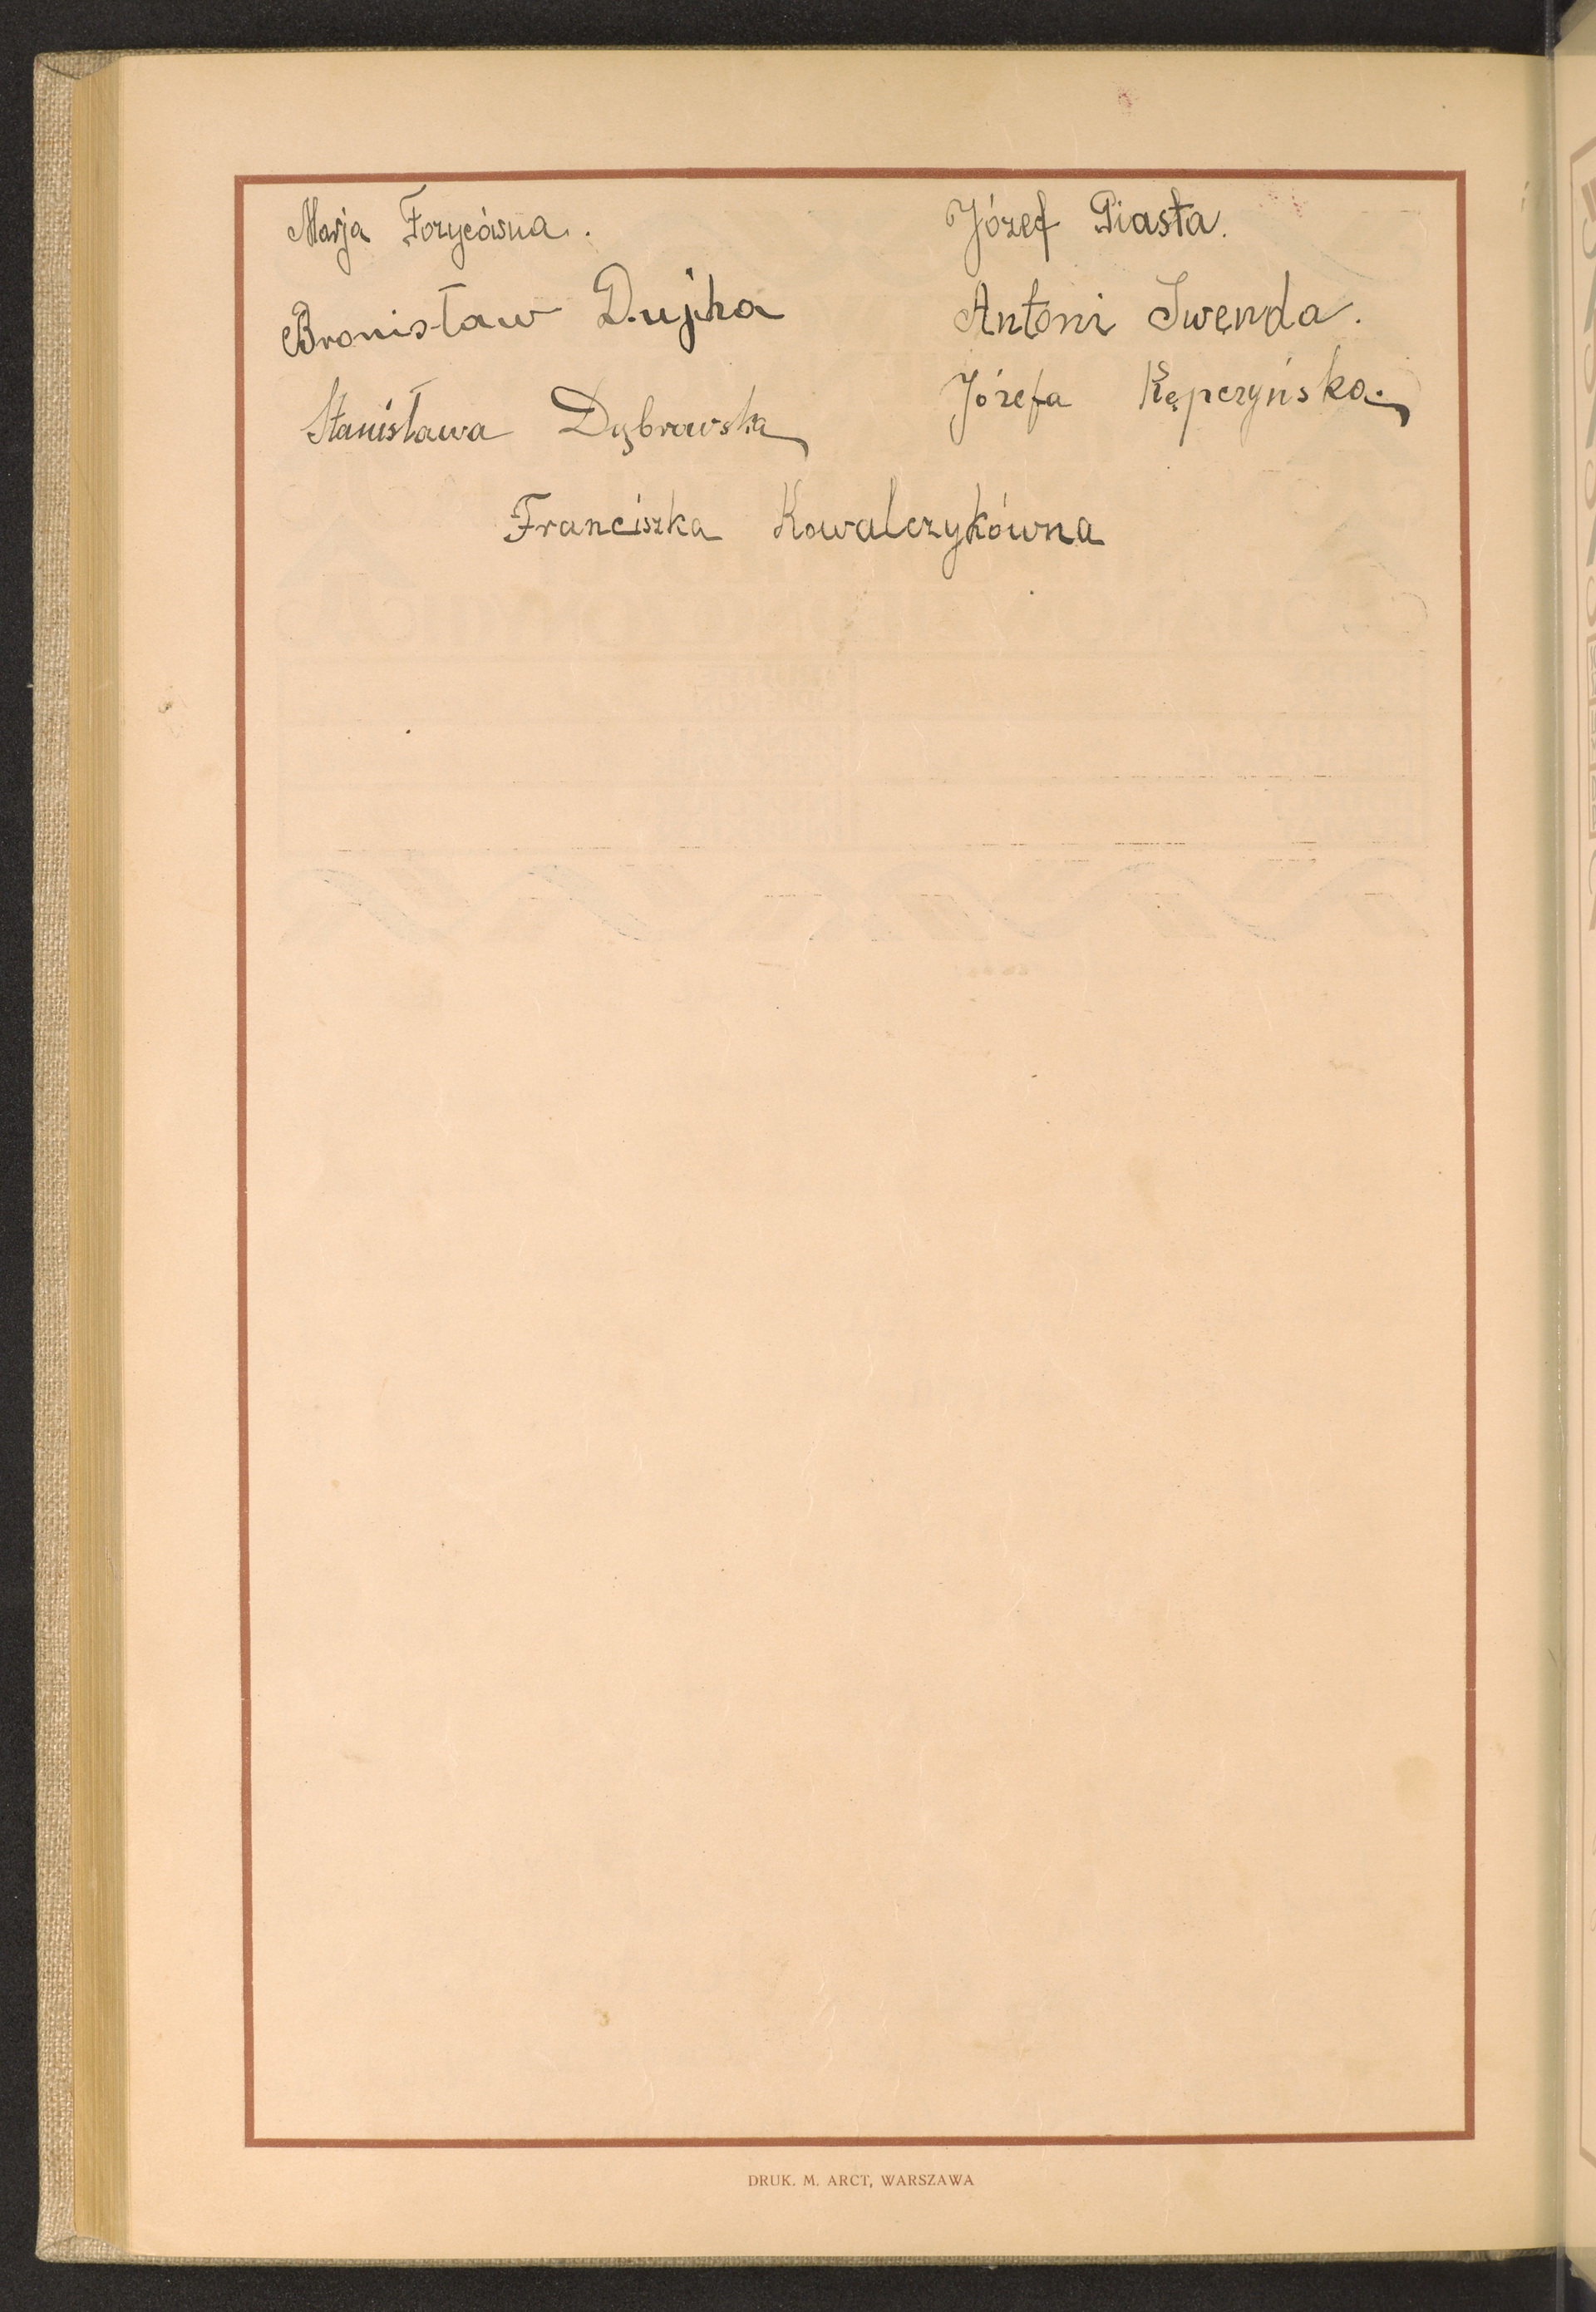 Marja Forycówna.
Bronisław Dujka
Stanisława Dąbrowska
Józef Piasta.
Antoni Swenda.
Józefa Kępczyńska.
Franciszka Kowalczykówna
DRUK. M. ARCT, WARSZAWA